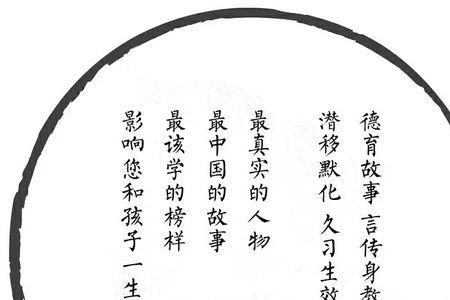 德育故事 言传身教
潜移默化 久习生效
最真实的人物
最中国的故事
最该学的榜样
影响您和孩子一生